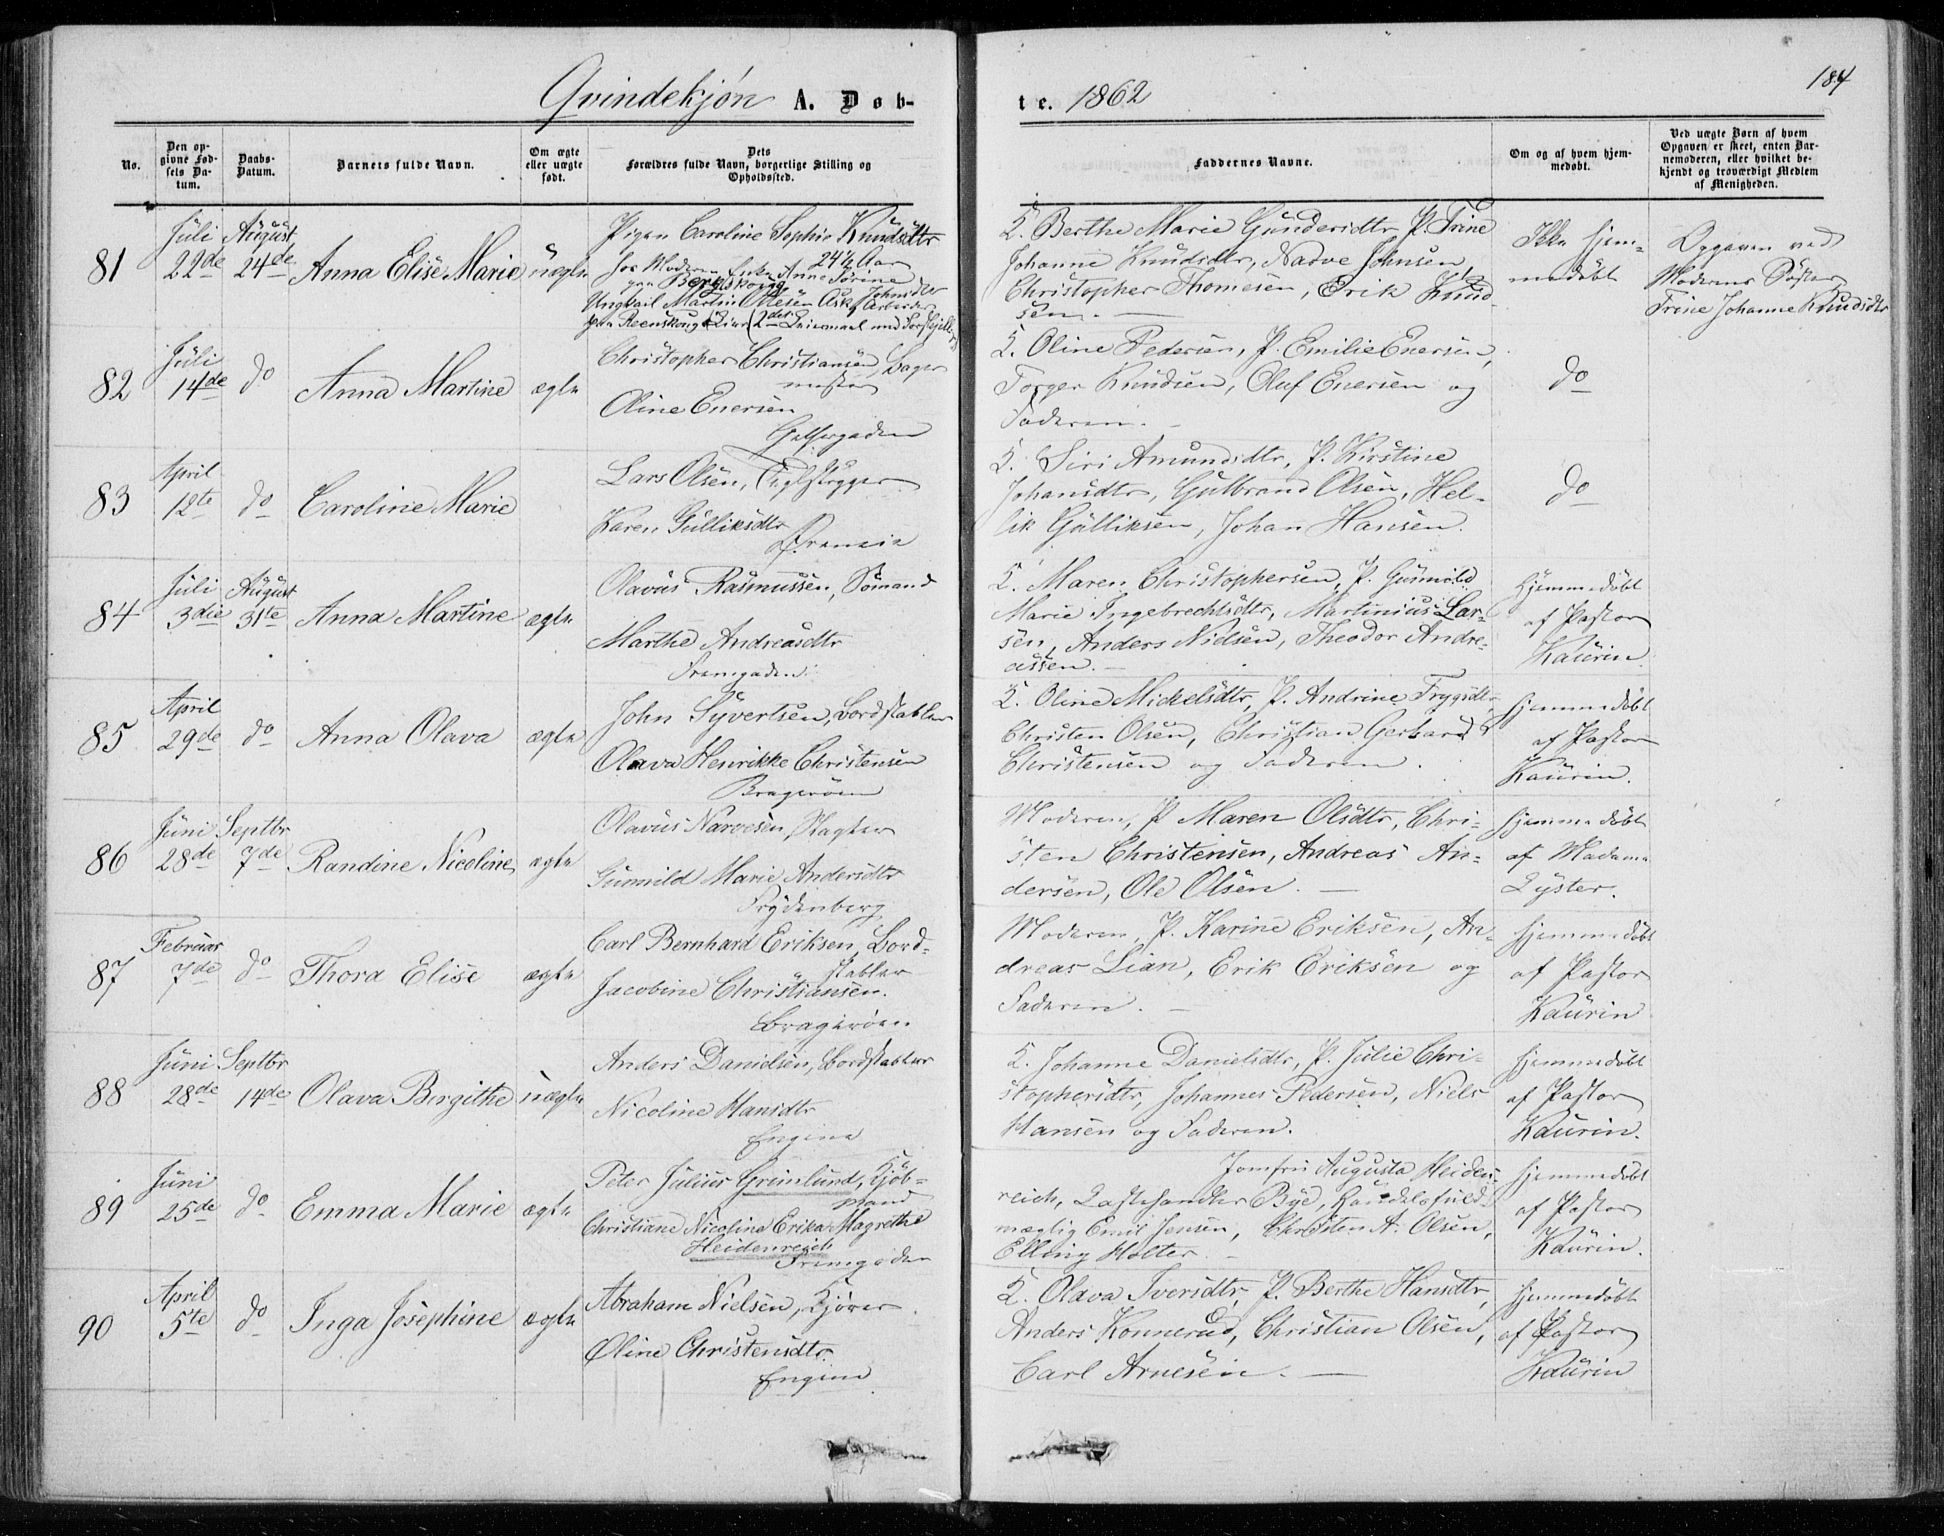 Qvindekjøn A. Døb-
te. 1862
184
No.
Den op-
givne Fød-
sels Da-
tum.
Daabs-
Datum.
Barnets fulde Navn.
Om ægte
eller uægte
født.
Dets
Forældres fulde Navn, borgerlige Stilling og
Opholdssted.
Faddernes Navne.
Om og af hvem hjem-
medøbt.
Ved uægte Børn af hvem
Opgaven er skeet, enten Bar-
nemoderen, eller hvilket be-
kjendt og troværdigt Medlem
af Menigheden.
81
Juli
22de
August
24de
Anna Elise Marie
uægte
Pigen Caroline Sophie Knudsdtr
24½ Aar
hos Moderen Enke Anne Torine
Johnsdtr
Ungkarl Martin Olesen Ask, Arbeider
2det Leiermaal
K. Berthe Marie Gundersdtr, P. Trine
Johanne Knudsdtr, Nadve Johnsen,
Christopher Thomesen, Erik Knud
sen.
Ikke hjem-
medøbt
Opgaven ved
Moderens Søster
Trine Johanne Knudsdtr
82
Juli
14de
do
Anna Martine
ægte
Christopher Christiansen, Bager
mester
Oline Enersen
K. Oline Pedersen, P. Emilie Enersen,
Torger Knudsen, Oluf Enersen og
Faderen.
do
83
April
12te
do
Caroline Marie
Lars Olsen, Teglstryger
Karen Gulliksdtr
K. Siri Amundsdtr, P. Kirstine
Johansdtr, Gulbrand Olsen, Hel-
lik Gulliksen, Johan Hansen.
do
84
Juli
3die
August
31te
Anna Martine
ægte
Olavus Rasmussen, Sømand
Marthe Andreasdtr
Tremgaden
K. Maren Christophersen, P. Gunnild
Marie Ingebrechtsdtr, Martinius Lar-
sen, Anders Nielsen, Theodor Andre-
assen.
Hjemmedøbt
af Pastor
Kaurin
85
April
29de
do
Anna Olava
ægte
John Syvertsen, Bordstabler
Olava Henrikke Christensen
Bragerøen
K. Oline Mickelsdtr, P. Andrine Trygsdtr,
Christen Olsen, Christian Gerhard
Christensen og Faderen.
hjemmedøbt
af Pastor
Kaurin.
86
Juni
28de
Septbr
7de
Randine Nicoline
ægte
Olavus Narvesen, Slagter
Gunnild Marie Andersdtr
Frydenberg
Moderen, P. Maren Olsdtr, Chri-
sten Christensen, Andreas An-
dersen, Ole Olsen.
hjemmedøbt
af Madame
Lyster.
87
Februar
7de
do
Thora Elise
ægte
Carl Bernhard Eriksen, Bord-
stabler
Jacobine Christiansen.
Bragerøen
Moderen, P. Karine Eriksen, An-
dreas Lian, Erik Eriksen og
Faderen.
hjemmedøbt
af Pastor
Kaurin
88
Juni
28de
Septbr
14de
Olava Bergithe
uægte
Anders Danielsen, Bordstabler
Nicoline Hansdtr
Engene
K. Johanne Danielsdtr, P. Julie Chri-
stophersdtr, Johannes Pedersen, Niels
Hansen og Faderen.
hjemmedøbt
af Pastor
Kaurin.
89
Juni
25de
do
Emma Marie
ægte
Peter Julius Grimlund, Kjøb-
mand
Christiane Nicoline Erika Magrethe
Heidenreich
Tremgaden
Jomfru Augusta Heiden-
reich, Lastehandler Bye, Handelsfuld-
mægtig Emil Jensen, Christen A. Olsen,
Elling Holter.
hjemmedøbt
af Pastor
Kaurin.
90
April
5te
do
Inga Josephine
ægte
Abraham Nielsen, Kjører.
Oline Christensdtr.
Engene
K. Olava Iversdtr, P. Berthe Hansdtr,
Anders Konnerud, Christian Olsen,
Carl Arnesen.
hjemmedøbt
af Pastor
Kaurin